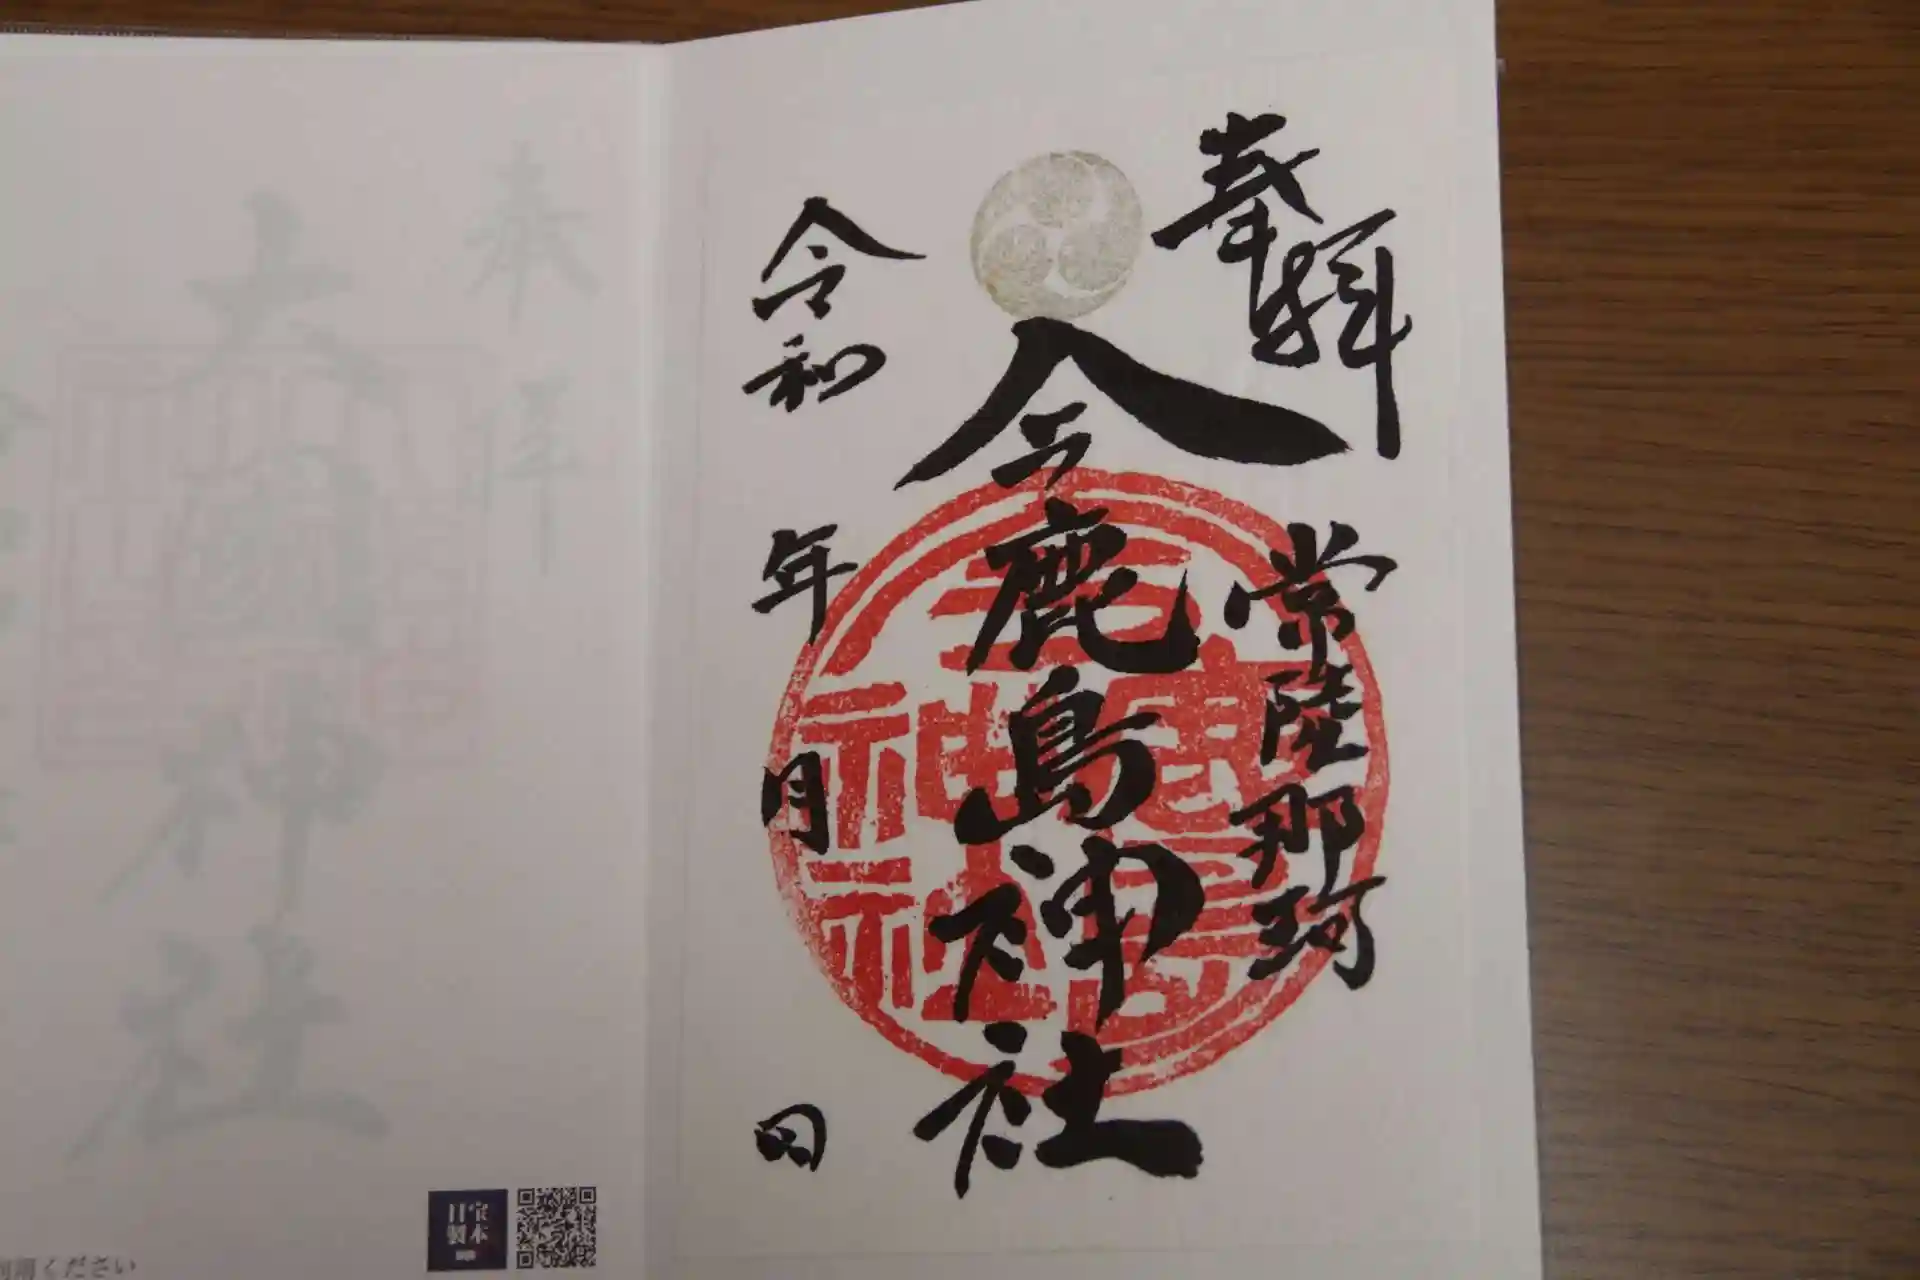 奉拝
常陸那珂
今鹿島神社
令和 年 月 日
奉拝
大國神社
宝本
日製
利用ください